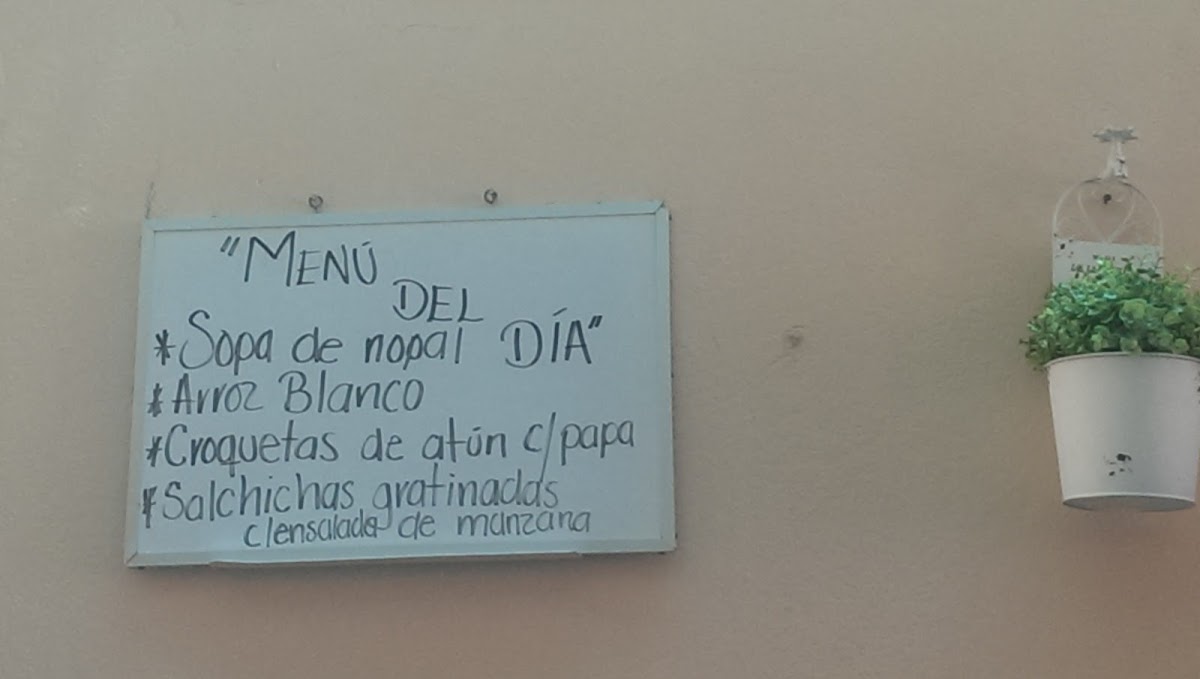 "MENÚ
DEL
DÍA"
*Sopa de nopal
*Arroz Blanco
*Croquetas de atún c/papa
*Salchichas gratinadas
c/ensalada de manzana